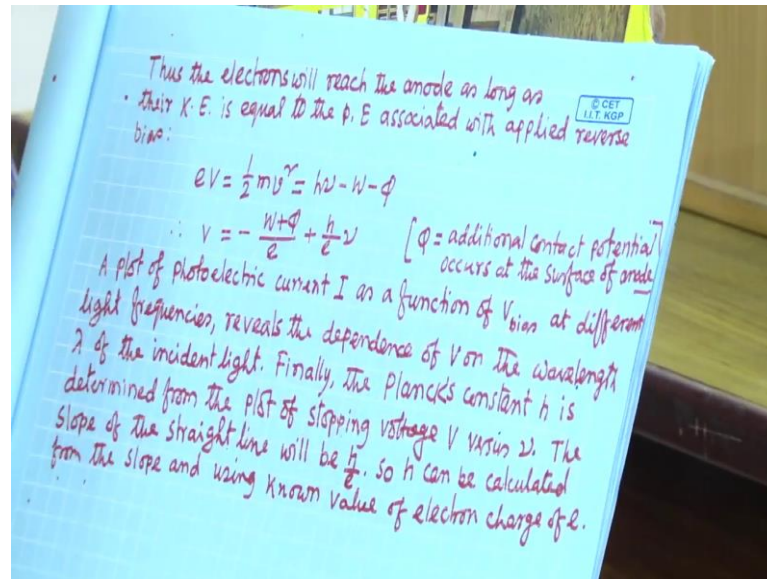 Thus the electrons will reach the anode as long as
their K.E. is equal to the P.E associated with applied reverse
bias:
© CET
I.I.T. KGP
eV = ½ mv² = hν - W - φ
∴ V = - (W+φ)/e + (h/e) ν [φ = additional contact potential
occurs at the surface of anode]
A plot of photoelectric current I as a function of V_bias at different
light frequencies, reveals the dependence of V on the wavelength
λ of the incident light. Finally, the Planck's constant h is
determined from the plot of stopping voltage V versus ν. The
slope of the straight line will be h/e. So h can be calculated
from the slope and using known value of electron charge of e.